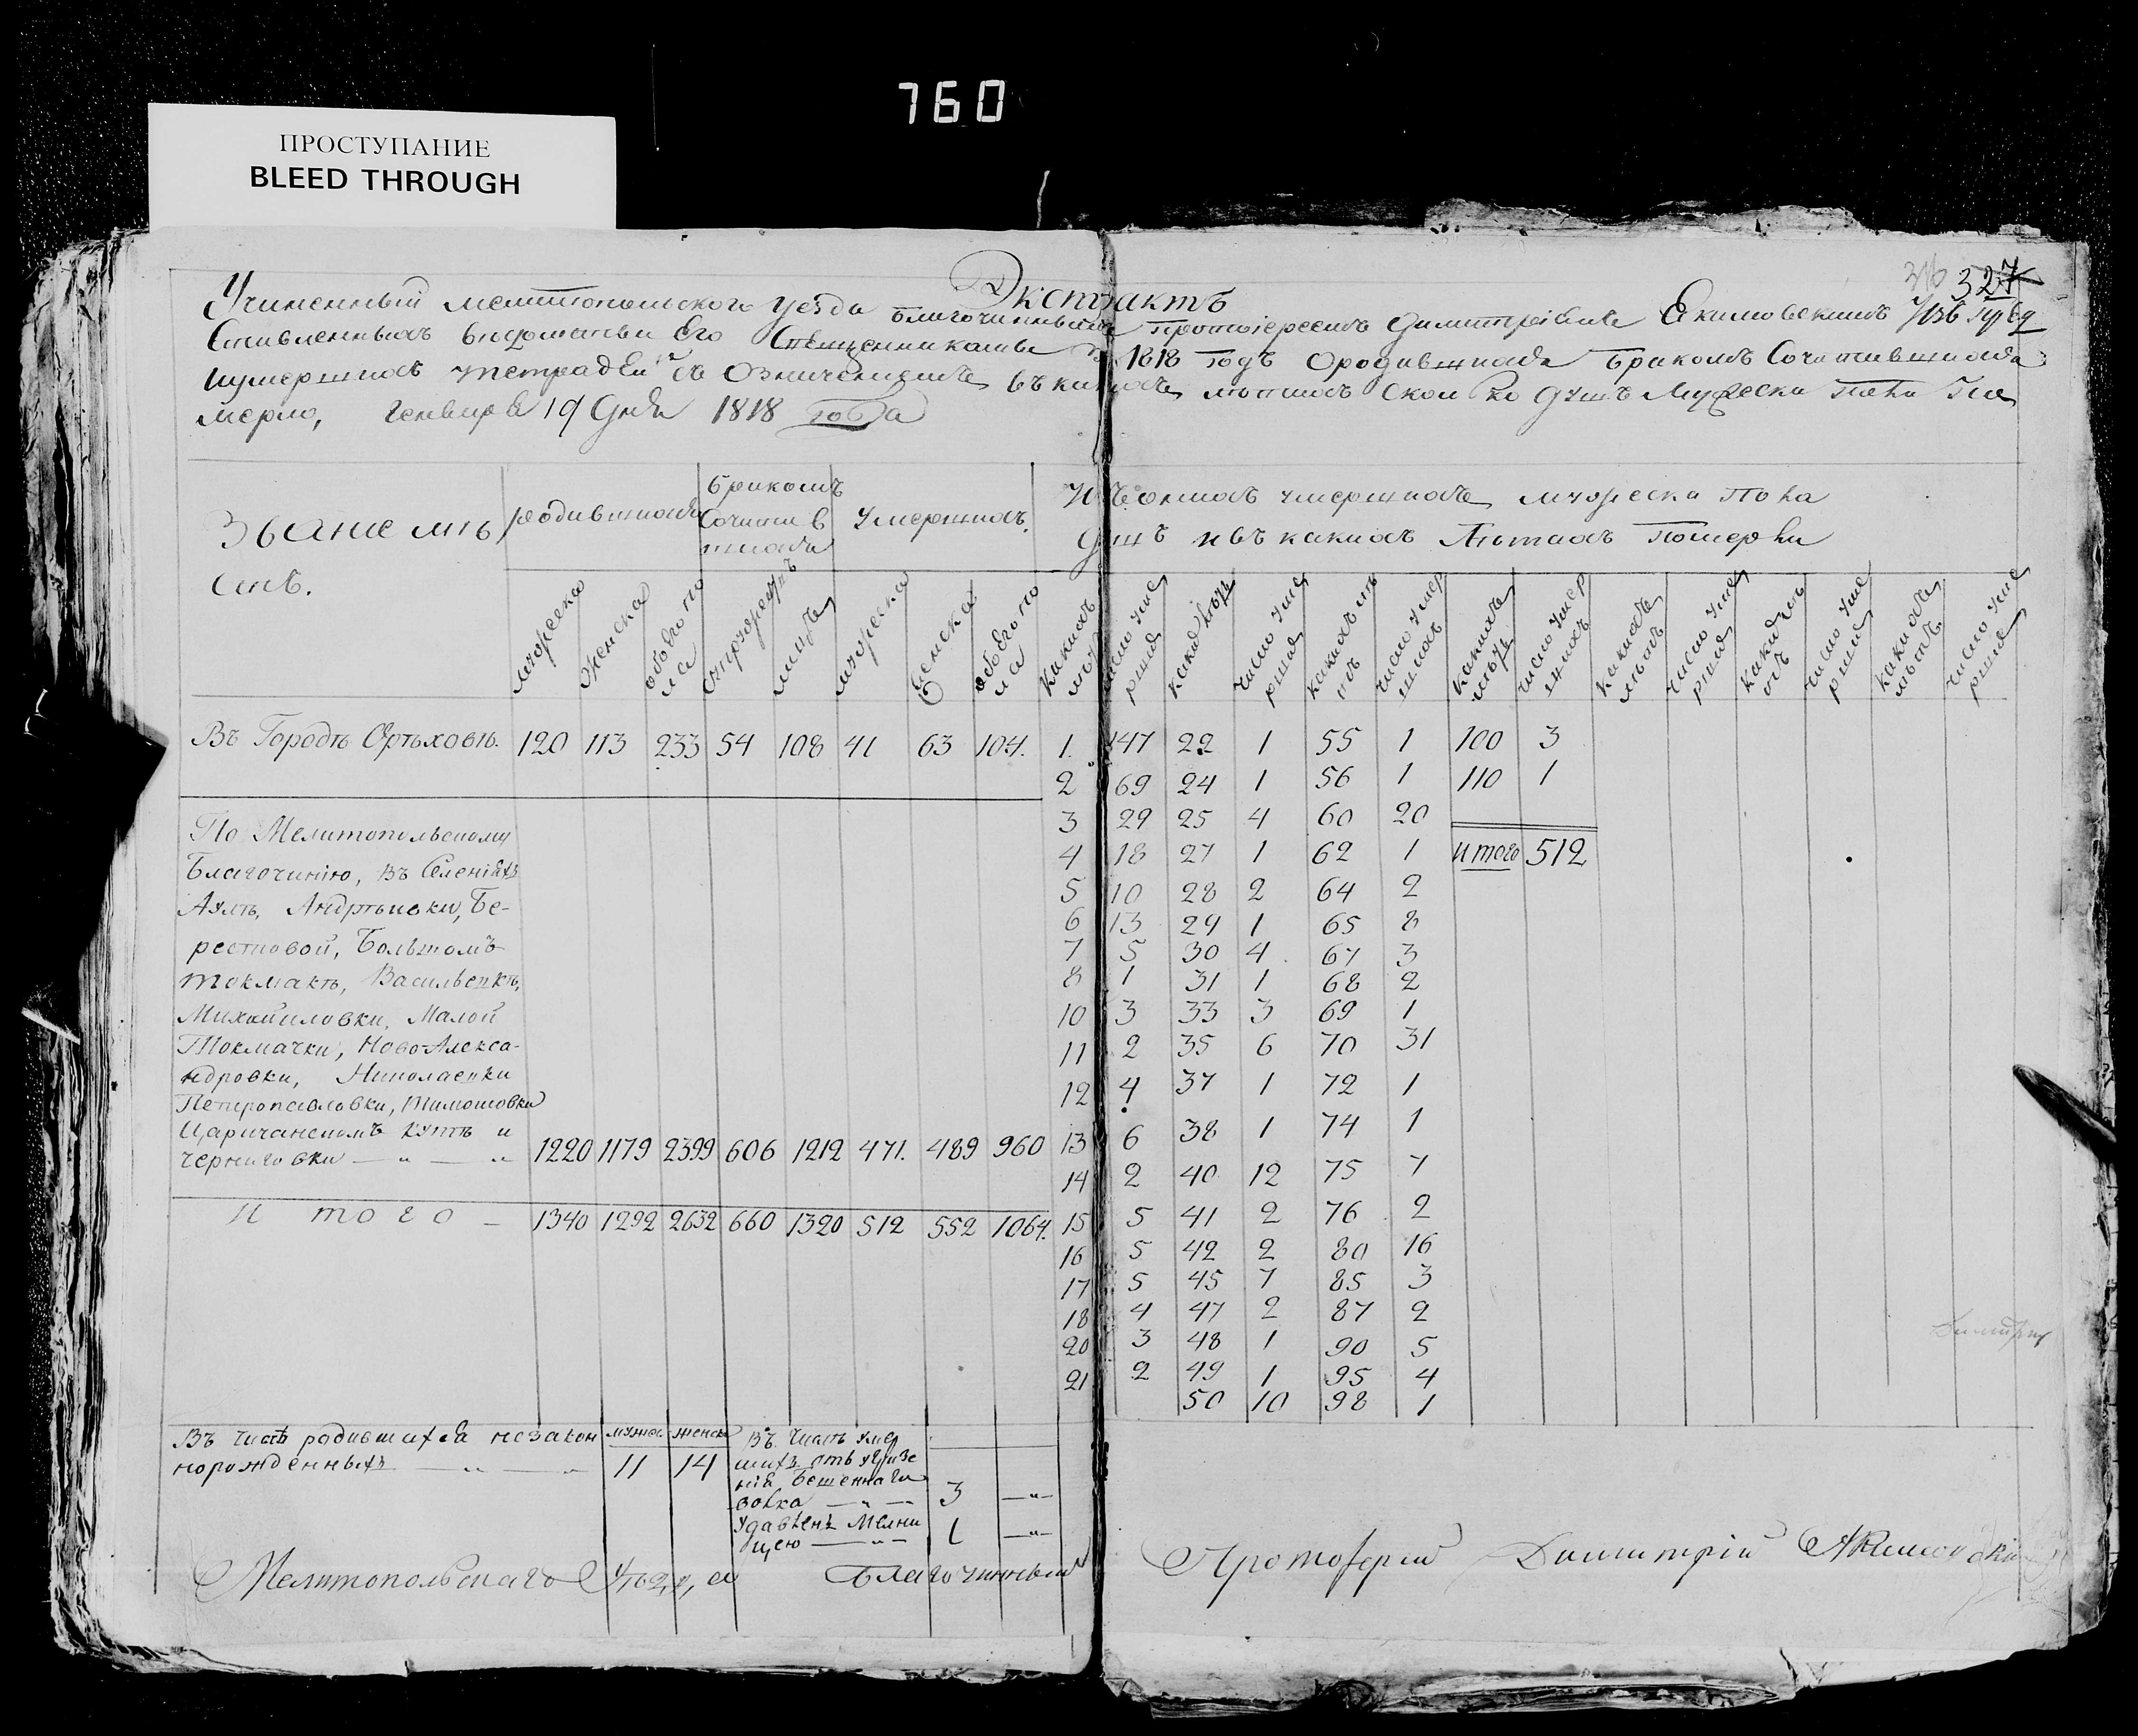 760
ПРОСТУПАНИЕ
BLEED THROUGH
316 327
Экстрактъ
Учиненный мелитопольского уезда благочиннымъ протоіереемъ Димитріемъ Акимовскимъ Изъ пред
ставленныхъ Его Священниками 1818 годъ Ородившихся бракомъ Сочитавшихся
иумершихъ тетрадей съ Означениемъ въ какихъ летахъ Сколко душъ Мужеска пола
мерло, Генваря 19 дня 1818 года
Званіе мѣ
стъ.
родившихся
бракомъ
Сочитав
шихся
Умершихъ.
Изъ оныхъ умершихъ мужеска Пола
душъ ивъ какихъ Летахъ Померли
мужеска женска обоего пола супружествъ лицъ мужеска женска обоего пола какихъ летъ число умершихъ какихъ летъ число умершихъ какихъ летъ число умершихъ какихъ летъ число умершихъ какихъ летъ число умершихъ какихъ летъ число умершихъ какихъ летъ число умершихъ
Въ Городѣ Орѣховѣ. 120 113 233 54 108 41 63 104. 1. 147 22 1 55 1 100 3
2 69 24 1 56 1 110 1
По Мелитопольскому 3 29 25 4 60 20
Благочинію, Въ Селеніяхъ 4 18 27 1 62 1 Итого 512
Аулѣ, Андрѣевки, Бе- 5 10 28 2 64 2
6 13 29 1 65 8
рестовой, Большомъ 7 5 30 4 67 3
Токмакѣ, Васильевкѣ, 8 1 31 1 68 2
Михайловки, Малой 10 3 33 3 69 1
Токмачки, Ново-Алекса- 11 2 35 6 70 31
ндровки, Николаевки 12 4 37 1 72 1
Петропавловки, Тимошовки
Царичанскомъ Кутѣ и
Черниговки — " — " 1220 1179 2399 606 1212 471. 489 960 13 6 38 1 74 1
14 2 40 12 75 7
Итого — 1340 1292 2632 660 1320 512 552 1064. 15 5 41 2 76 2
16 5 42 2 80 16
17 5 45 7 85 3
18 4 47 2 87 2
20 3 48 1 90 5
21 2 49 1 95 4
50 10 98 1
Въ Числѣ родившихся незакон
норожденныхъ — " — "
мужес. женска
11 14
Въ Числѣ умер
шихъ отъ угризе
нія Бешеннаго
волка — " — 3 — " —
Удавленъ Мелни
цею — " — 1 — " —
Мелитопольскаго Уѣзда Благочинный Протоіерей Димитрій Акимовскій